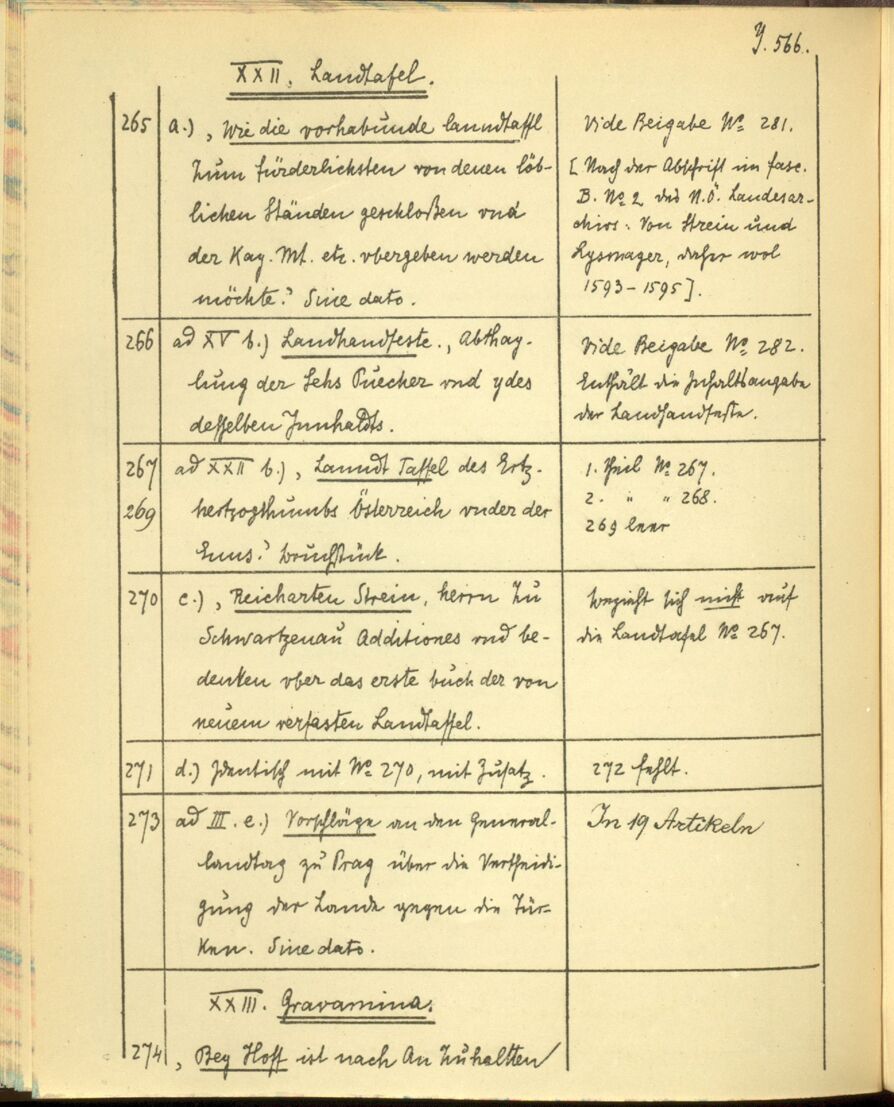 Y. 566.
XXII. Landtafel.
265 a.) „Wie die vorhabunde lanndtaffl
zum fürderlichsten von denen löb-
lichen Ständen geschloßen vnd
der Kay. Mt. etc. vbergeben werden
möchte.“ Sine dato.
Vide Beigabe No 281.
[Nach der Abschrift im fasc.
B. No 2 des N.Ö. Landesar-
chivs: Von Strein und
, daher wol
1593-1595].
266 ad XV b.) Landhandfeste. „Abthay-
lung der Sechs Puecher vnd ydes
desselben Innhaldts.
Vide Beigabe No 282.
Enthält die Inhaltsangabe
der Landhandfeste.
267 ad XXII b.) „Lanndt Taffel des Ertz-
269 hertzogthumbs Österreich vnder der
Enns.“ Bruchstück.
1. Theil No 267.
2. " " 268.
269 leer
270 c.) „Reicharten Strein, herrn zu
Schwartzenau Additiones vnd be-
denken vber das erste buch der von
neuem verfasten Landtaffel.
bezieht sich nicht auf
die Landtafel No 267.
271 d.) Identisch mit No 270, mit Zusatz.
272 fehlt.
273 ad III. e.) Vorschläge an den General-
landtag zu Prag über die Vertheidi-
gung der Lande gegen die Tür-
ken. Sine dato.
In 19 Artikeln
XXIII. Gravamina.
274 „Bey Hoff ist nach An zuhaltten